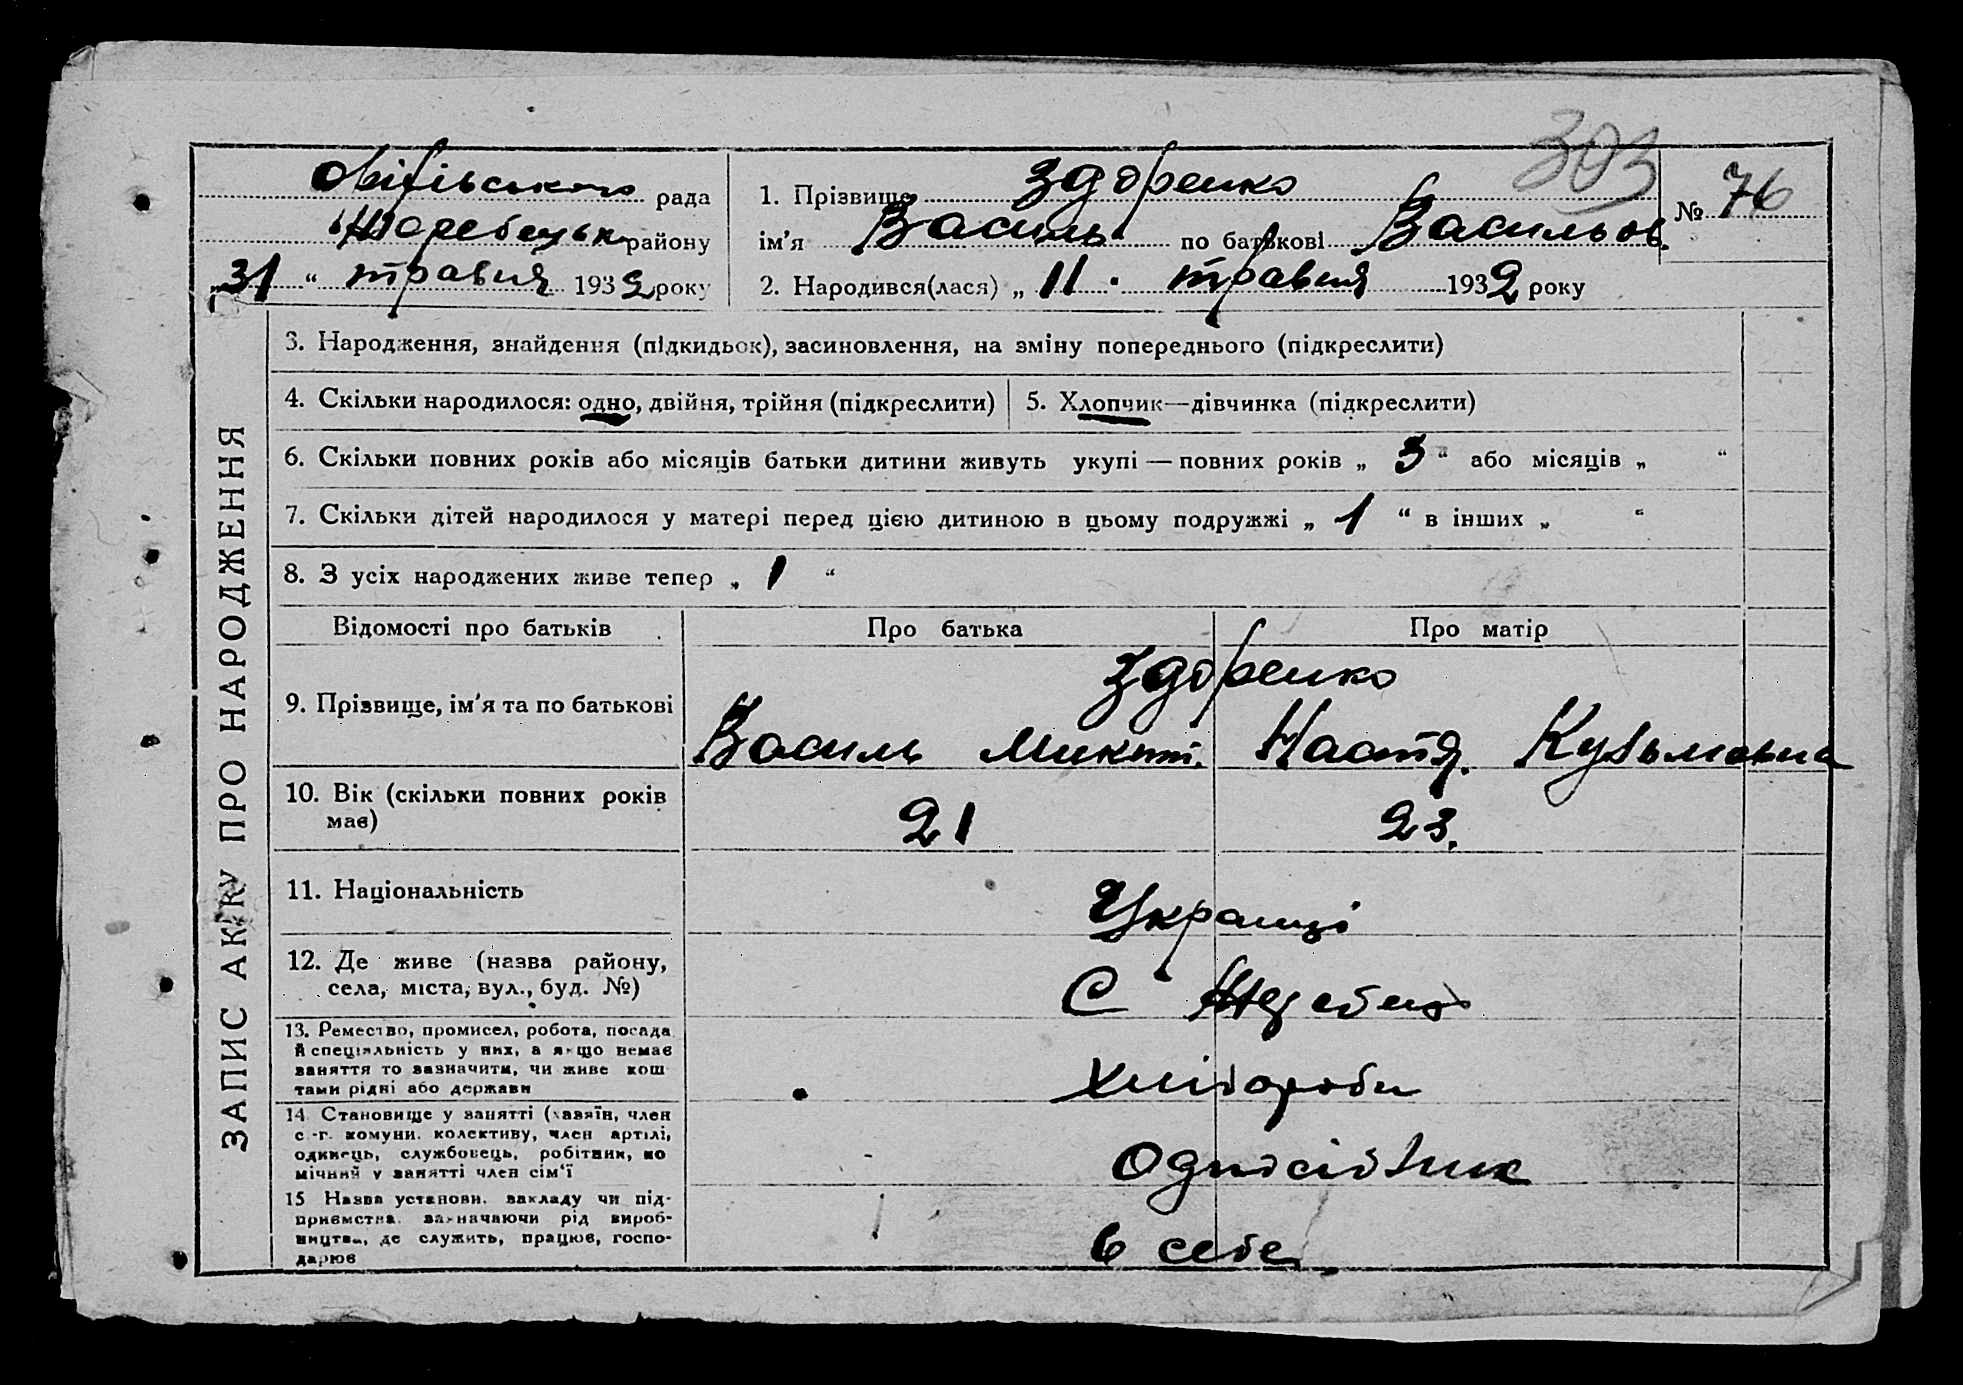 303
рада
1. Прізвище Здоренко
№ 76
району
ім'я Василь по батькові Васильов.
31 “ травня 1932 року
2. Народився(лася) „ 11 травня 1932 року
ЗАПИС АКТУ ПРО НАРОДЖЕННЯ
3. Народження, знайдення (підкидьок), засиновлення, на зміну попереднього (підкреслити)
4. Скільки народилося: одно, двійня, трійня (підкреслити)
5. Хлопчик—дівчинка (підкреслити)
6. Скільки повних років або місяців батьки дитини живуть укупі — повних років „ 3 “ або місяців „ “
7. Скільки дітей народилося у матері перед цією дитиною в цьому подружжі „ 1 “ в інших „ “
8. З усіх народжених живе тепер „ 1 “
Відомості про батьків
Про батька
Про матір
Здоренко
9. Прізвище, ім'я та по батькові
Василь Микит. Настя. Кузьмовна
10. Вік (скільки повних років
має)
21
23.
11. Національність
Українці
12. Де живе (назва району,
села, міста, вул., буд. №)
С Жеребець
13. Ремество, промисел, робота, посада
й спеціяльність у них, а якщо немає
заняття то зазначити, чи живе кош
тами рідні або держави
Хлібороби
14 Становище у занятті (хазяїн, член
с.-г. комуни. колективу, член артілі,
одинець, службовець, робітник, по
мічний у занятті член сім'ї
Одноосібник
15 Назва установи. закладу чи під-
приємства. зазначаючи рід вироб-
ництва, де служить, працює, госпо-
дарює
в себе